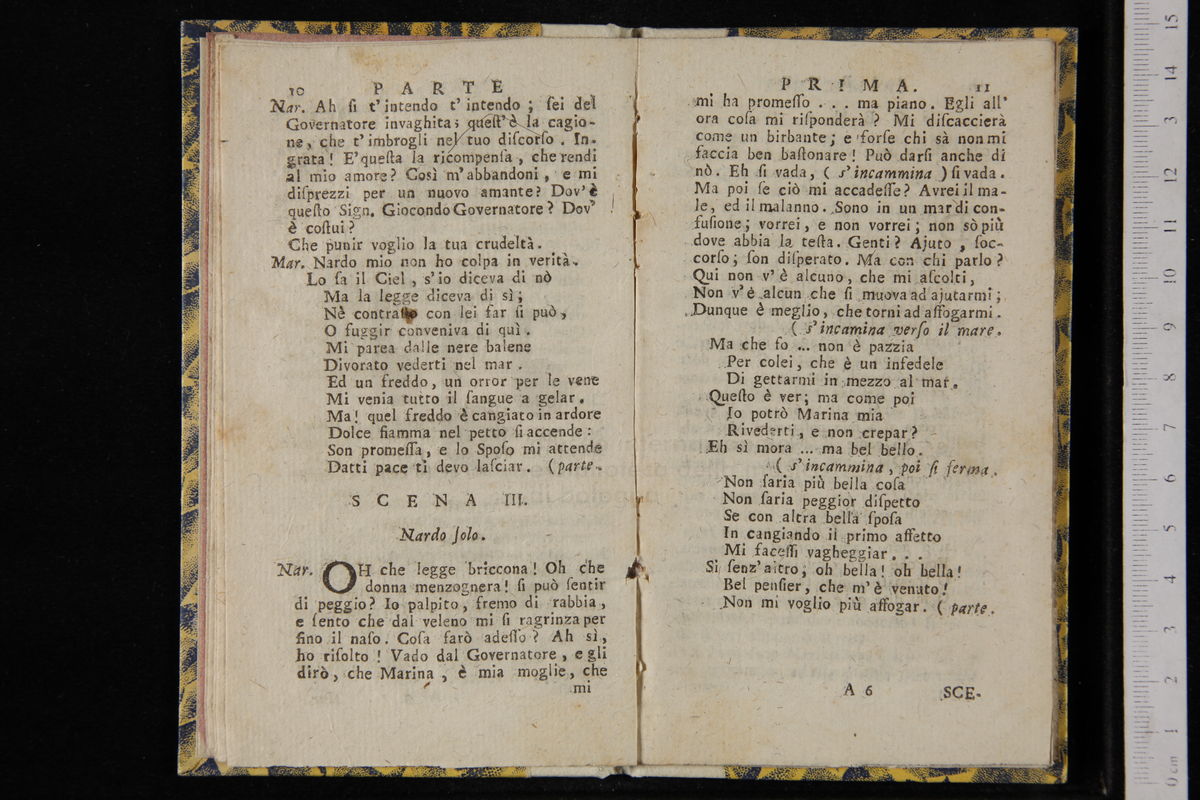 10 PARTE
Nar. Ah ſi t'intendo t'intendo; ſei del
Governatore invaghita; queſt'è la cagio-
ne, che t'imbrogli nel tuo diſcorſo. In-
grata! E'queſta la ricompenſa, che rendi
al mio amore? Così m'abbandoni, e mi
diſprezzi per un nuovo amante? Dov'è
queſto Sign. Giocondo Governatore? Dov'
è coſtui?
Che punir voglio la tua crudeltà.
Mar. Nardo mio non ho colpa in verità.
Lo ſa il Ciel, s'io diceva di nò
Ma la legge diceva di sì;
Nè contraſto con lei far ſi può,
O fuggir conveniva di quì.
Mi parea dalle nere balene
Divorato vederti nel mar.
Ed un freddo, un orror per le vene
Mi venia tutto il ſangue a gelar.
Ma! quel freddo è cangiato in ardore
Dolce fiamma nel petto ſi accende:
Son promeſſa, e lo Spoſo mi attende
Datti pace ti devo laſciar. (parte.
SCENA III.
Nardo ſolo.
Nar. OH che legge briccona! Oh che
donna menzognera! ſi può ſentir
di peggio? Io palpito, fremo di rabbia,
e ſento che dal veleno mi ſi ragrinza per
fino il naſo. Coſa farò adeſſo? Ah sì,
ho riſolto! Vado dal Governatore, e gli
dirò, che Marina, è mia moglie, che
mi
PRIMA. 11
mi ha promeſſo... ma piano. Egli all'
ora coſa mi riſponderà? Mi diſcaccierà
come un birbante; e forſe chi sà non mi
faccia ben baſtonare! Può darſi anche di
nò. Eh ſi vada, (s'incammina) ſi vada.
Ma poi ſe ciò mi accadeſſe? Avrei il ma-
le, ed il malanno. Sono in un mar di con-
fuſione; vorrei, e non vorrei; non sò più
dove abbia la teſta. Genti? Ajuto, ſoc-
corſo; ſon diſperato. Ma con chi parlo?
Qui non v'è alcuno, che mi aſcolti,
Non v'è alcun che ſi muova ad ajutarmi;
Dunque è meglio, che torni ad affogarmi.
(s'incamina verſo il mare.
Ma che fo... non è pazzia
Per colei, che è un infedele
Di gettarmi in mezzo al mar.
Queſto è ver; ma come poi
Io potrò Marina mia
Rivederti, e non crepar?
Eh sì mora... ma bel bello.
(s'incammina, poi ſi ferma.
Non ſaria più bella coſa
Non ſaria peggior diſpetto
Se con altra bella ſpoſa
In cangiando il primo affetto
Mi faceſſi vagheggiar...
Sì ſenz'altro, oh bella! oh bella!
Bel penſier, che m'è venuto!
Non mi voglio più affogar. (parte.
A 6 SCE-
0 cm 1 2 3 4 5 6 7 8 9 10 11 12 13 14 15